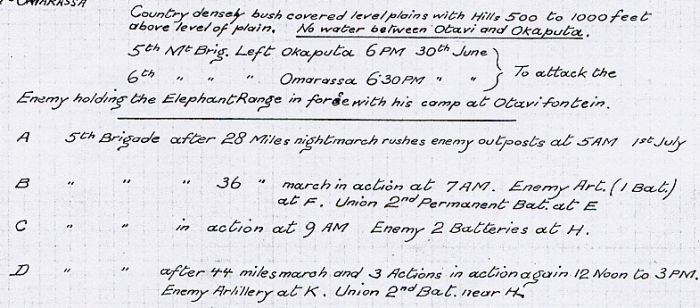 OMARASSA
Country densely bush covered level plains with Hills 500 to 1000 feet
above level of plain. No water between Otavi and Okaputa.
5th Mt Brig. Left Okaputa 6 PM 30th June } To attack the
6th " " " Omarassa 6·30 PM " "
Enemy holding the Elephant Range in force with his camp at Otavifontein.
A 5th Brigade after 28 Miles nightmarch rushes enemy outposts at 5AM 1st July
B " " " 36 " march in action at 7 AM. Enemy Art. (1 Bat.)
at F. Union 2nd Permanent Bat. at E
C " " in action at 9 AM Enemy 2 Batteries at H.
D " " after 44 miles march and 3 Actions in action again 12 Noon to 3 PM.
Enemy Artillery at K. Union 2nd Bat. near H.